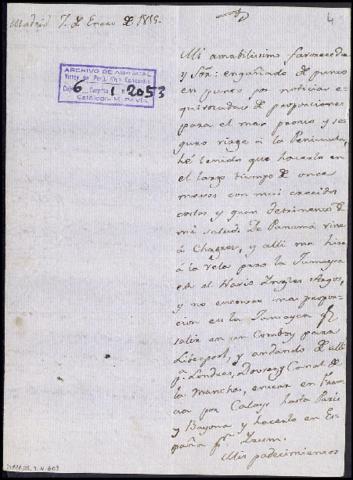 Madrid 7. de Enero de 1815.
4
ARCHIVO DE ABASCAL
6 1.º 2053
Mi amabilisimo favorecedor
y Sõr: engañado de punto
en punto por noticias e-
quivocadas de proporciones
para el mas pronto y se-
guro viage á la Peninsula,
hé tenido que hacerlo en
el largo tiempo de once
meses con mui crecidos
costos y gran detrimento de
mi salud. De Panamá vine
á Chagres, y alli me hice
á la vela para la Jamayca
en el Navio Yngles Argos,
y no encontré mas propor-
cion en la Jamayca pª
salir en un Comboy para
Liverpool, y andando de alli
pª Londres, Dovres y Canal de
la Mancha, entrar en Fran-
cia por Calays hasta Paris
y Bayona y hacerlo en Es-
paña pr Yrum.
Mis padecimientos